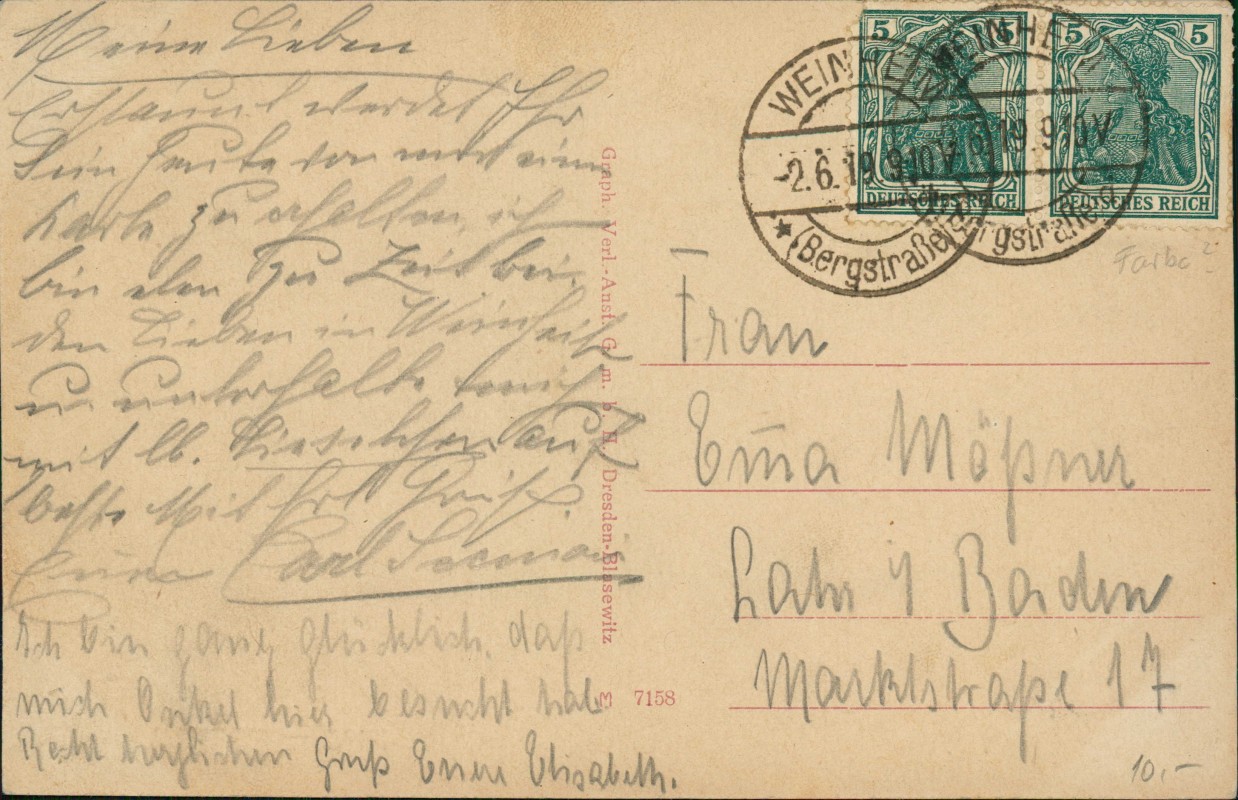 Meine Lieben
Erstaunt werdet Ihr
Sein heute von mir eine
Karte zu erhalten, ich
bin eben zu Zeit bei
den Lieben in Weinheim
u. unterhalte mich
mit lb. Lieselchen auf
beste Mit hrl Grüß.
Eurer Carl
Ich bin ganz glücklich, daß
mich Onkel hier besucht hat.
Recht herzlichen Gruß Euere Elisabeth.
Graph. Verl.-Anst. G. m. b. H., Dresden-Blasewitz
7158
5 5
DEUTSCHES REICH
5 5
DEUTSCHES REICH
WEINHEIM
-2.6.19.9-10V.
(Bergstraße)
WEINHEIM
19.9-10V
(Bergstraße)
Farbe?
Frau
Em̄a Mößner
Lahr i Baden
Marktstraße 17
10,-